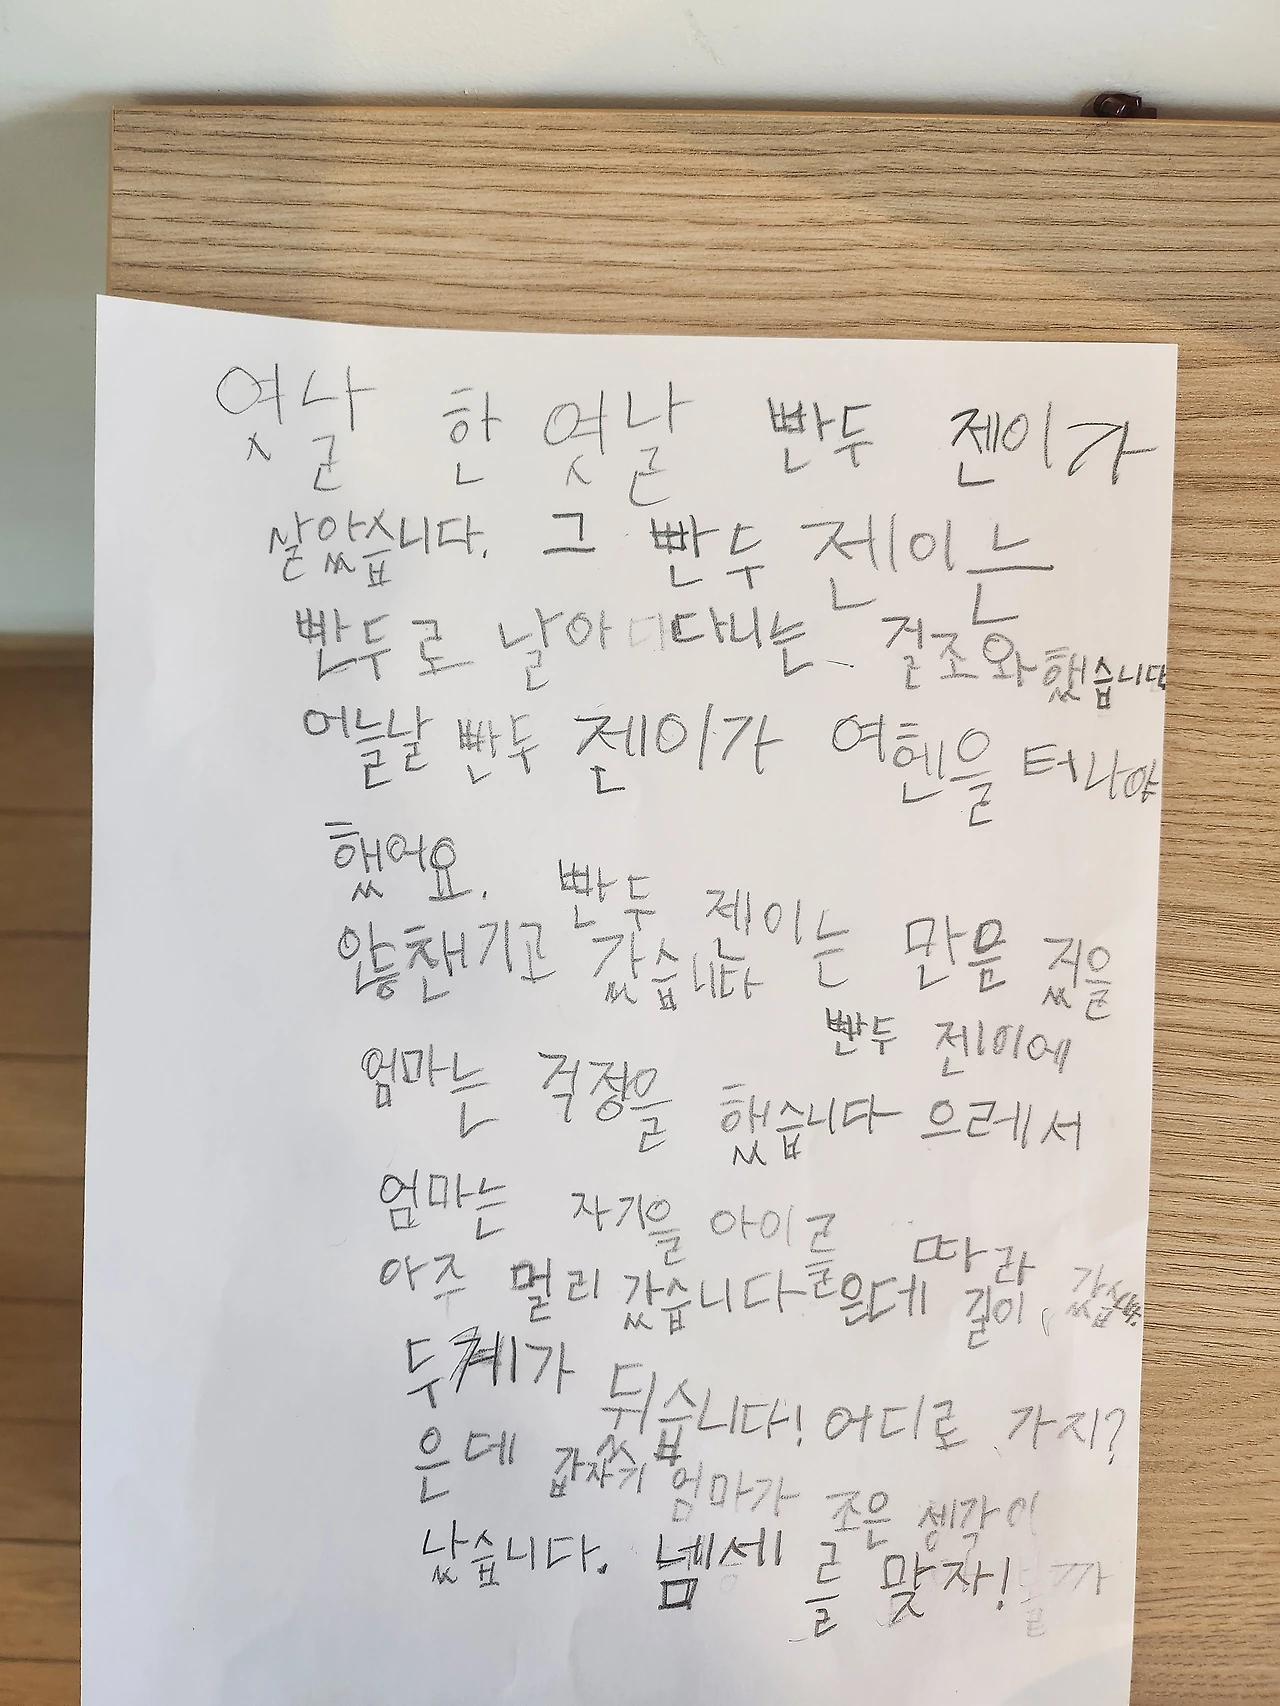 엿날 한 엿날 빤두 젠이가
살았습니다. 그 빤두 젠이는
빤두로 날아 다니는 걸 조와했습니다
어늘날 빤두 젠이가 여헨을 터나야
했어요. 빤두 젠이는 만음 젔을
안능챈기고 갔습니다
빤두 젠이에
엄마는 걱정을 했습니다 으레서
엄마는 자기을 아이를 따라 갔습니다.
아주 멀리 갔습니다 은데 길이
두게가 뒤습니다! 어디로 가지?
은데 갑자기 엄마가 조은 생각이
났습니다. 넴세를 맞자!